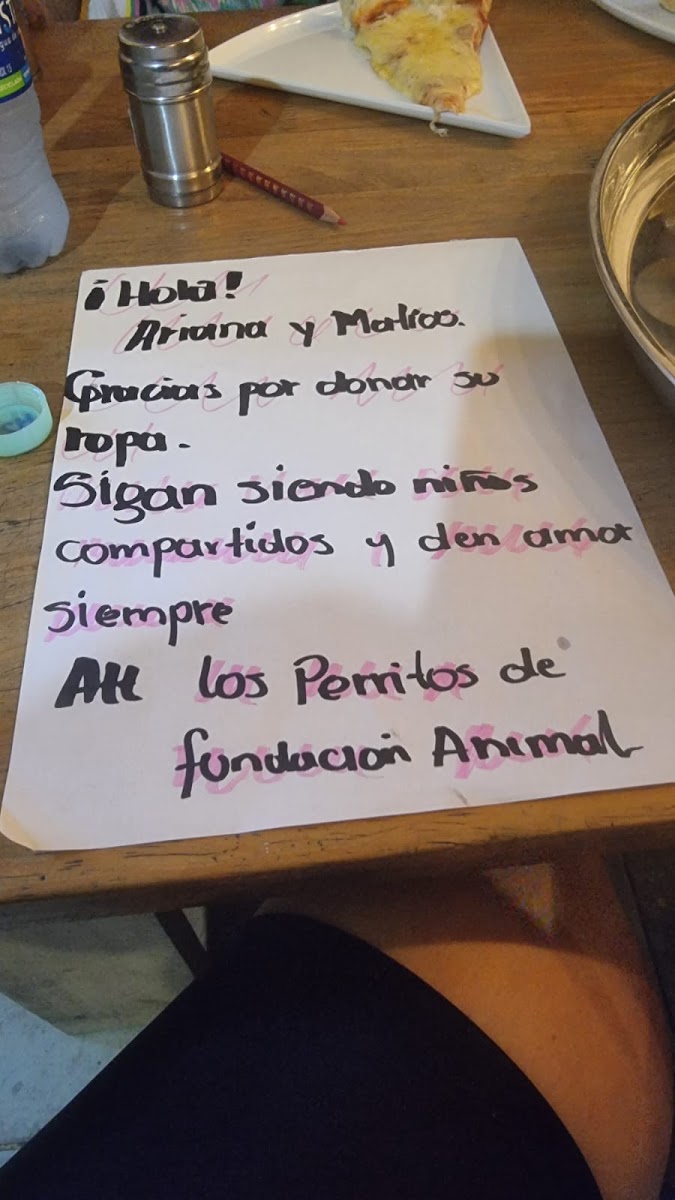 ¡Hola!
Ariana y Matias.
Gracias por donar su
ropa.
Sigan siendo niños
compartidos y den amor
siempre
Att los Perritos de
fundación Animal